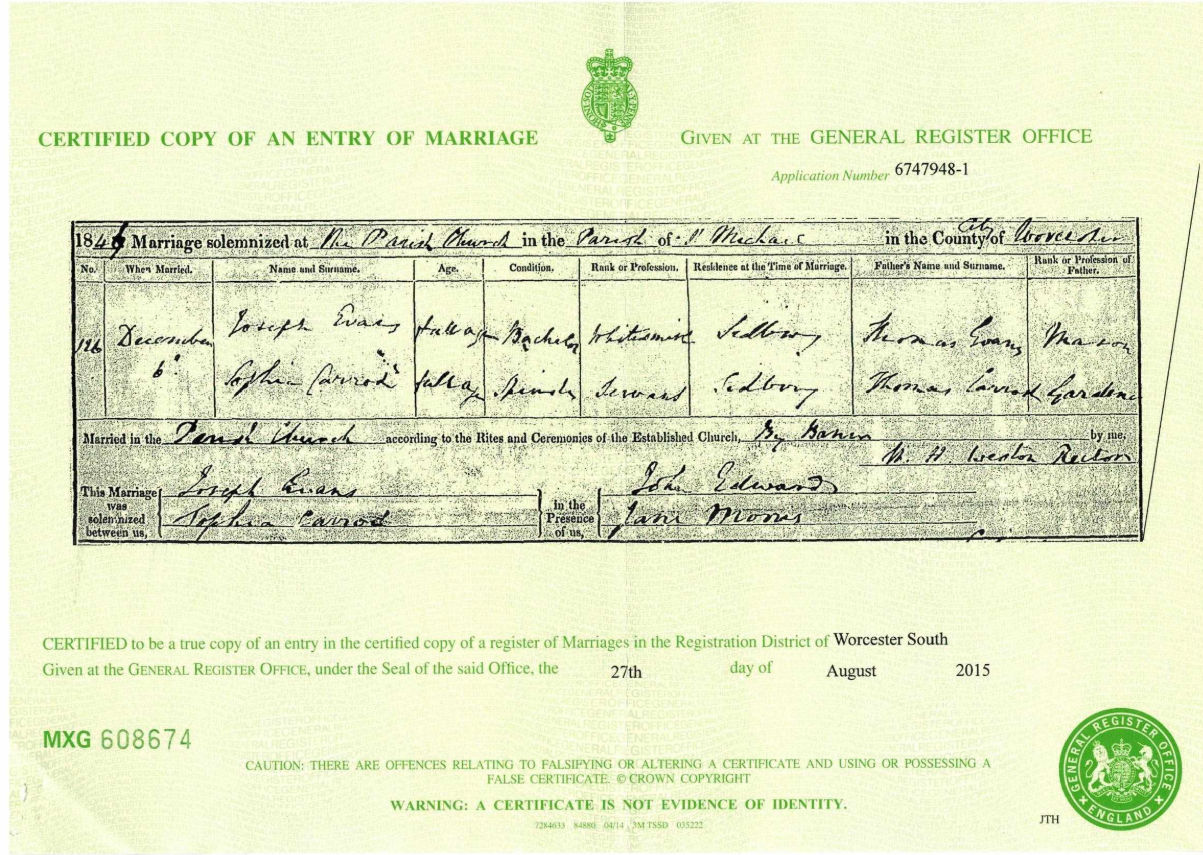 CERTIFIED COPY OF AN ENTRY OF MARRIAGE
GIVEN AT THE GENERAL REGISTER OFFICE
Application Number 6747948-1
184 Marriage solemnized at The Parish Church in the Parish of St Michael in the County City of Worcester
No. When Married. Name and Surname. Age. Condition. Rank or Profession. Residence at the Time of Marriage. Father's Name and Surname. Rank or Profession of Father.
126 December 6 Joseph Evans full age Bachelor Whitesmith Thomas Evans Mason
Sophia Carrod full age Servant Thomas Carrod Gardener
Married in the Parish Church according to the Rites and Ceremonies of the Established Church, By Banns by me,
W. H. Weston Rector
This Marriage was solemnized between us, Joseph Evans
Sophia Carrod
in the Presence of us, John Edwards
Jane Morris
CERTIFIED to be a true copy of an entry in the certified copy of a register of Marriages in the Registration District of Worcester South
Given at the GENERAL REGISTER OFFICE, under the Seal of the said Office, the 27th day of August 2015
MXG 608674
CAUTION: THERE ARE OFFENCES RELATING TO FALSIFYING OR ALTERING A CERTIFICATE AND USING OR POSSESSING A
FALSE CERTIFICATE. © CROWN COPYRIGHT
WARNING: A CERTIFICATE IS NOT EVIDENCE OF IDENTITY.
7284633 84880 04/14 3M TSSD 035222
JTH
GENERAL REGISTER OFFICE
ENGLAND